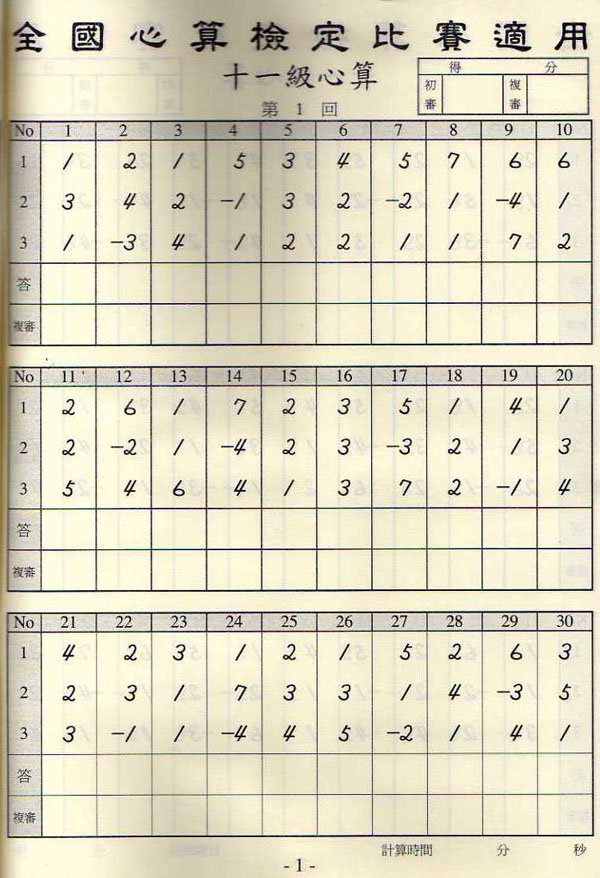 全國心算檢定比賽適用
十一級心算
得 分
初審 複審
第 1 回
No 1 2 3 4 5 6 7 8 9 10
1 1 2 1 5 3 4 5 7 6 6
2 3 4 2 -1 3 2 -2 1 -4 1
3 1 -3 4 1 2 2 1 1 7 2
答
複審
No 11 12 13 14 15 16 17 18 19 20
1 2 6 1 7 2 3 5 1 4 1
2 2 -2 1 -4 2 3 -3 2 1 3
3 5 4 6 4 1 3 7 2 -1 4
答
複審
No 21 22 23 24 25 26 27 28 29 30
1 4 2 3 1 2 1 5 2 6 3
2 2 3 1 7 3 3 1 4 -3 5
3 3 -1 1 -4 4 5 -2 1 4 1
答
複審
計算時間 分 秒
- 1 -